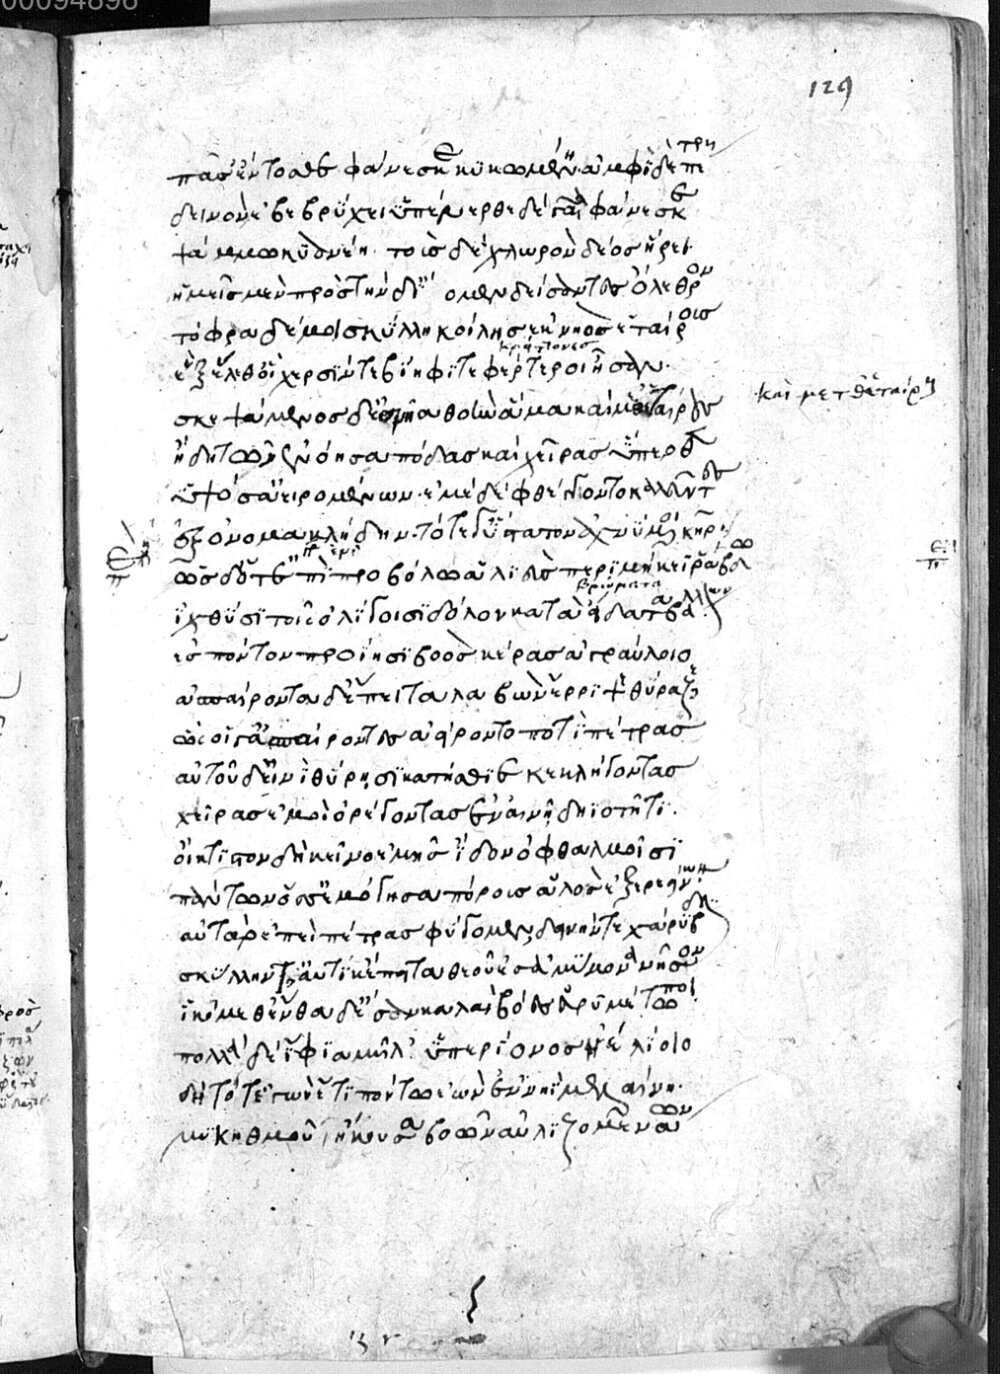 00094896
129
πᾶσ' ἔντοσθε φάνεσκε κυκωμένη· ἀμφὶ δὲ πέτρη
δεινὸν ἐβεβρύχει ὑπένερθε δὲ γαῖα φάνεσκε
ψάμμω κυανέη· τοὺς δὲ χλωρὸν δέος ἥρει·
ἡμεῖς μὲν πρὸς τὴν δ' ἴδομεν δείσαντες ὄλεθρον
τόφρα δέ μοι σκύλλη κοίλης ἐκ νηὸς ἑταίρους
κρείττονες
ἓξ ἕλεθ' οἳ χερσίν τε βίηφί τε φέρτεροι ἦσαν·
σκεψάμενος δ' ἐς νῆα θοὴν ἅμα καὶ μεθ' ἑταίρους
καὶ μεθ' ἑταίρους
ἤδη τῶν ἐνόησα πόδας καὶ χεῖρας ὕπερθεν
ὑψόσ' ἀειρομένων· ἐμὲ δὲ φθέγγοντο καλεῦντες
ἐξονομακλήδην· τότε γ' ὕστατον ἀχνύμενοι κῆρ·
ὡς δ' ὅτ' ἐπὶ προβόλω ἁλιεὺς περιμήκεϊ ῥάβδω
βρώματα
ἰχθύσι τοῖς ὀλίγοισι δόλον κατὰ εἴδατα βάλλων
ἐς πόντον προΐησι βοὸς κέρας ἀγραύλοιο
ἀσπαίροντα δ' ἔπειτα λαβὼν ἔρριψε θύραζε
ὣς οἵ γ' ἀσπαίροντες ἀείροντο ποτὶ πέτρας
αὐτοῦ δ' εἰνὶ θύρησι κατήσθιε κεκλήγοντας
χεῖρας ἐμοὶ ὀρέγοντας ἐν αἰνῆ δηϊοτῆτι·
οἴκτιστον δὴ κεῖνο ἐμῆς ἴδον ὀφθαλμοῖσι
πάντων ὅσσ' ἐμόγησα πόρους ἁλὸς ἐξερεείνων
αὐτὰρ ἐπεὶ πέτρας φύγομεν δεινήν τε χάρυβδιν
σκύλλην τ' αὐτίκ' ἔπειτα θεοῦ ἐς ἀμύμονα νῆσον
ἱκόμεθ' ἔνθα δ' ἔσαν καλαὶ βόες εὐρυμέτωποι
πολλὰ δὲ ἴφια μῆλ' ὑπερίονος ἠελίοιο
δὴ τότ' ἐγὼν ἔτι πόντω ἐὼν ἐν νηῒ μελαίνη·
μυκηθμοῦ τ' ἤκουσα βοῶν αὐλιζομενάων